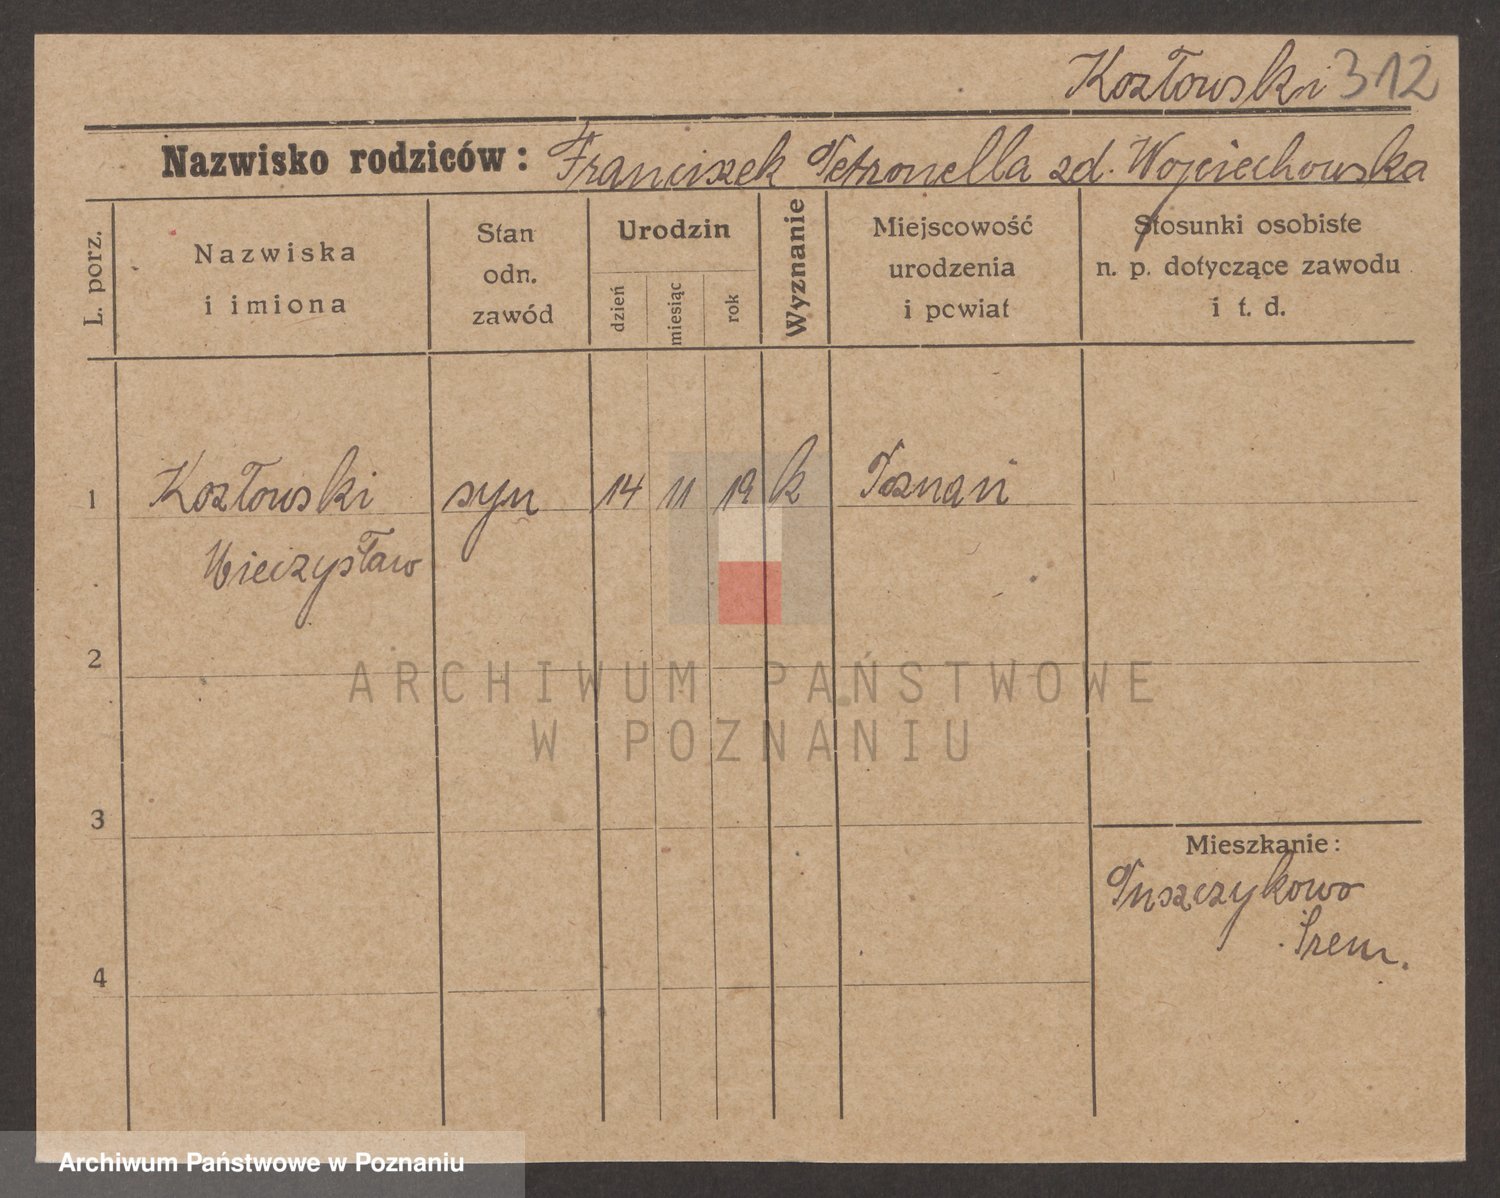 Kozłowski 312
Nazwisko rodziców: Franciszek Petronella zd. Wojciechowska
L. porz.
Nazwiska
i imiona
Stan
odn.
zawód
Urodzin
dzień
miesiąc
rok
Wyznanie
Miejscowość
urodzenia
i powiat
Stosunki osobiste
n. p. dotyczące zawodu
i t. d.
1 Kozłowski syn 14 11 19 k Poznań
Mieczysław
2
ARCHIWUM PAŃSTWOWE
W POZNANIU
3
Mieszkanie:
Puszczykowo
Śrem.
4
Archiwum Państwowe w Poznaniu